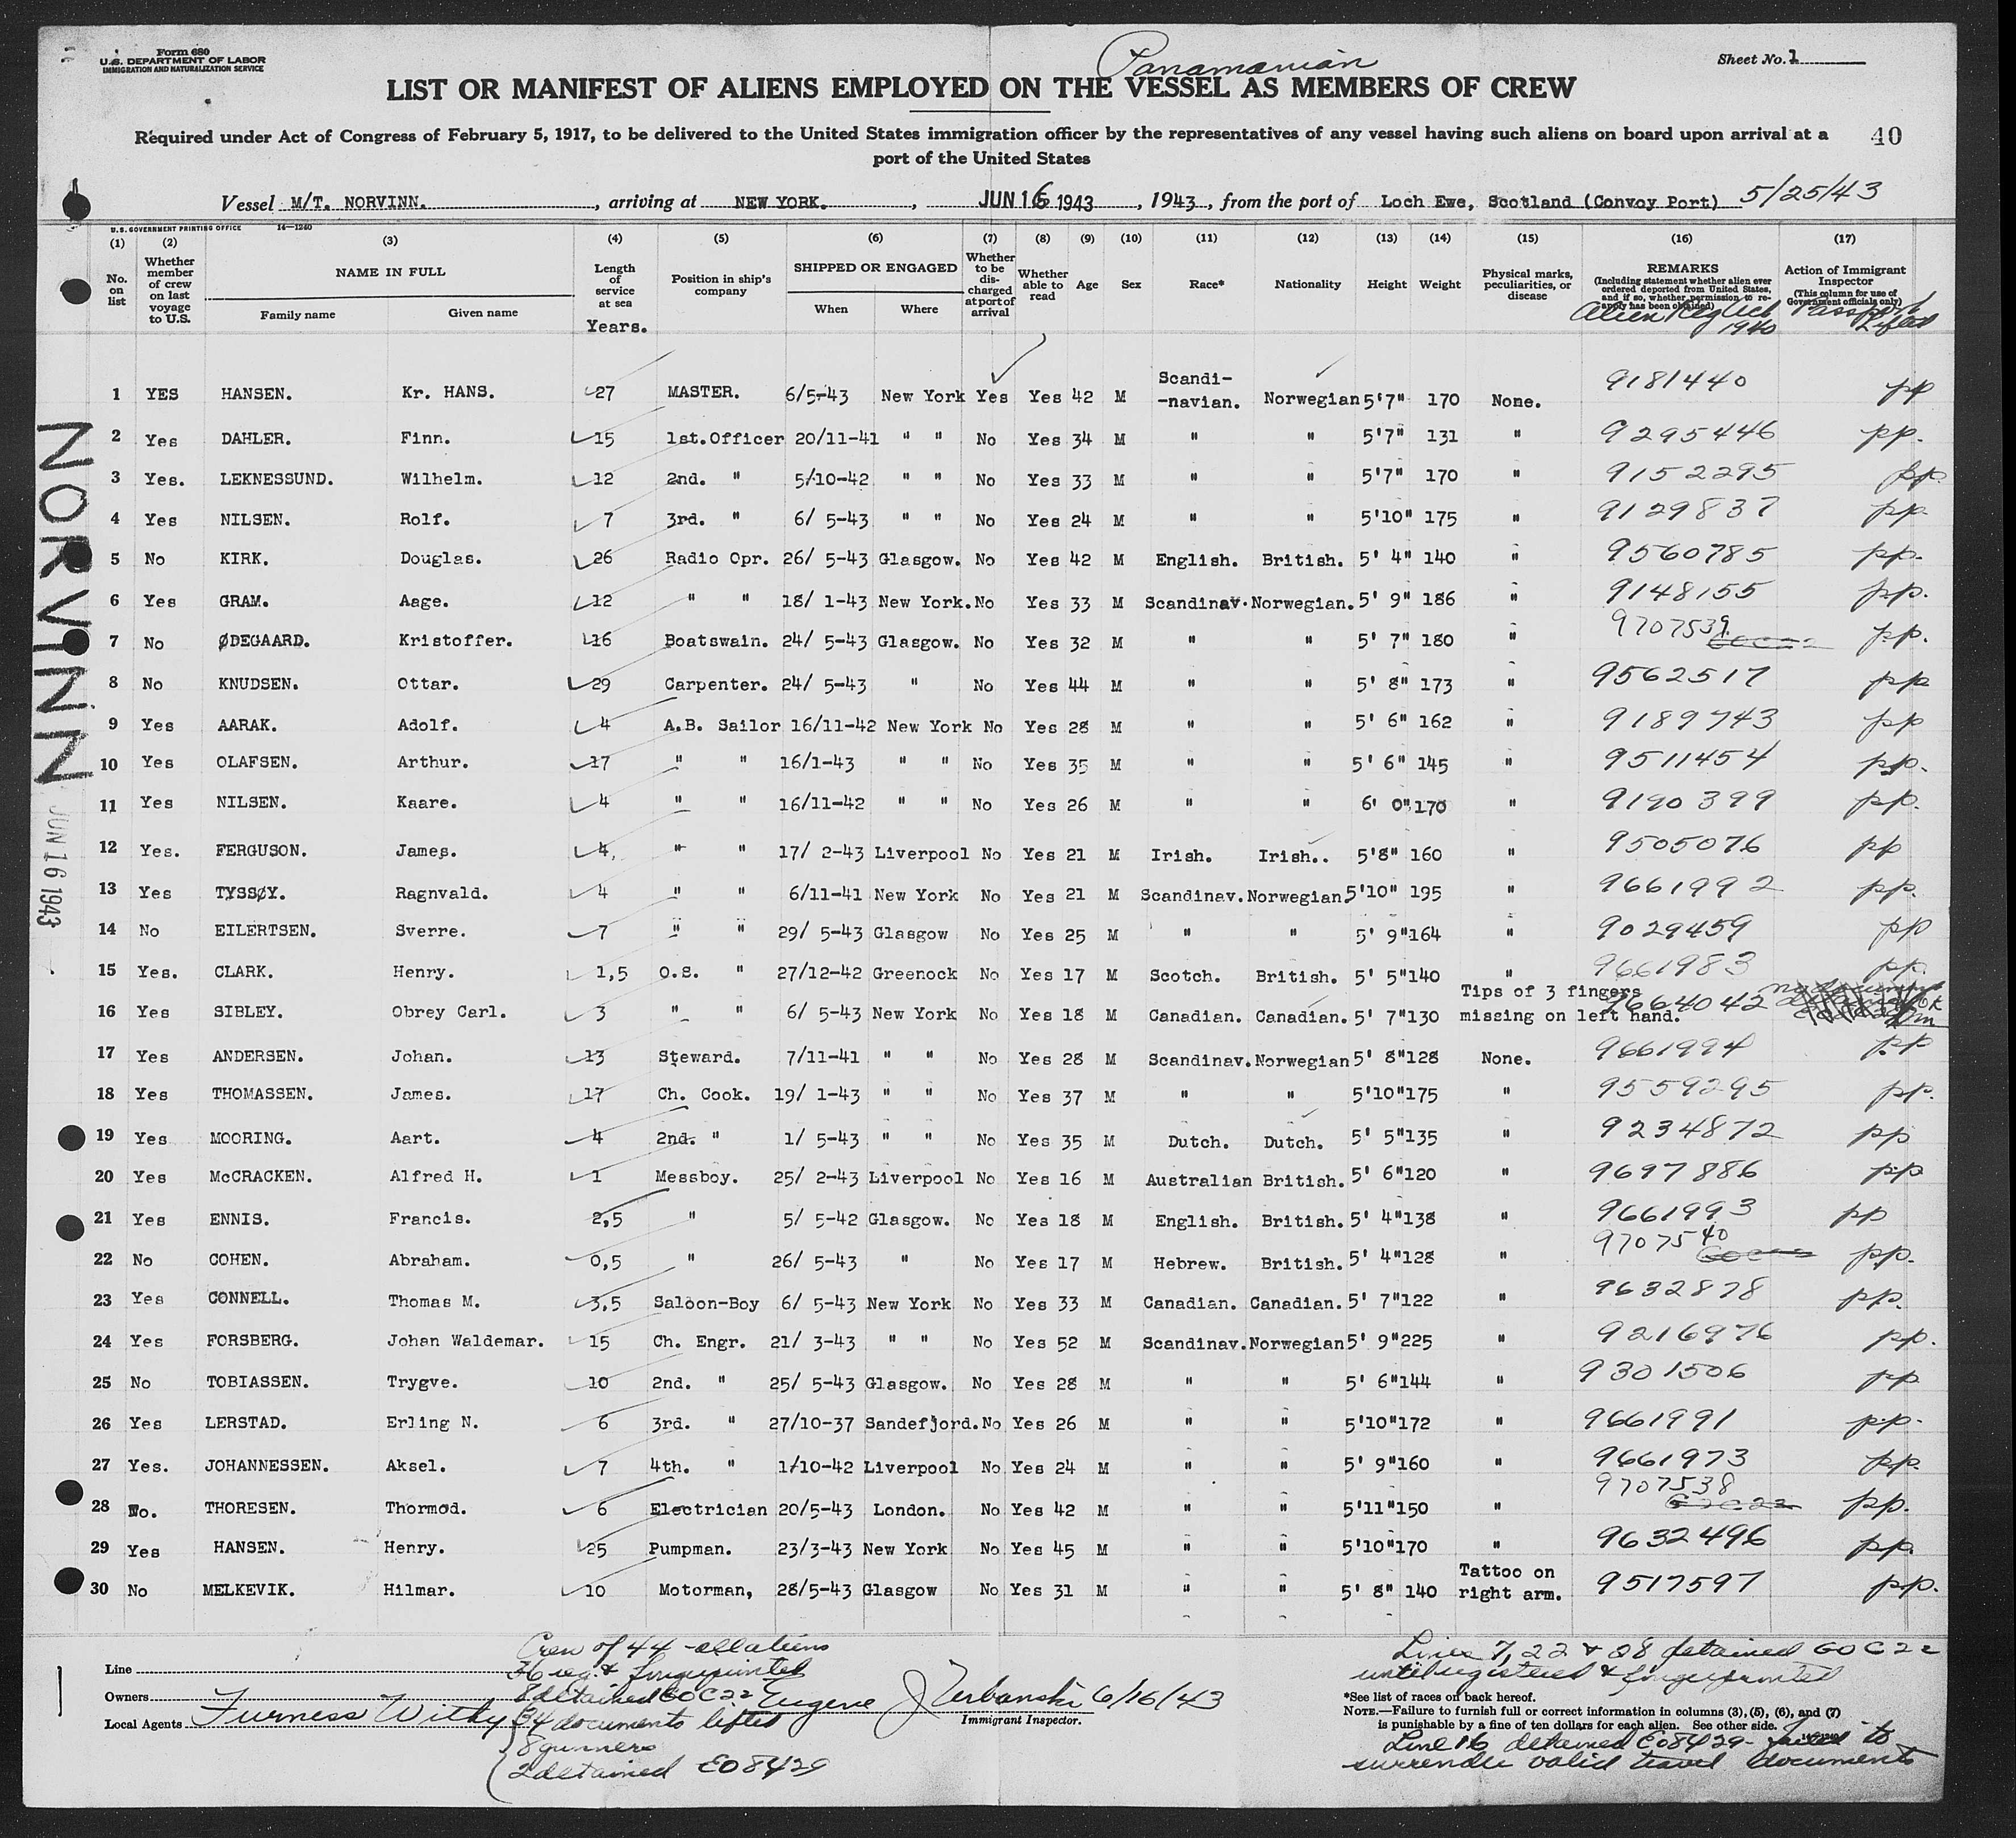 Form 680
U.S. DEPARTMENT OF LABOR
IMMIGRATION AND NATURALIZATION SERVICE
Panamanian
Sheet No. 1
LIST OR MANIFEST OF ALIENS EMPLOYED ON THE VESSEL AS MEMBERS OF CREW
Required under Act of Congress of February 5, 1917, to be delivered to the United States immigration officer by the representatives of any vessel having such aliens on board upon arrival at a
port of the United States
40
Vessel M/T. NORVINN. , arriving at NEW YORK. , JUN 16 1943 , 1943 , from the port of Loch Ewe, Scotland (Convoy Port) 5/25/43
U.S. GOVERNMENT PRINTING OFFICE 14-1240
(1) (2) (3) (4) (5) (6) (7) (8) (9) (10) (11) (12) (13) (14) (15) (16) (17)
No. on list
Whether member of crew on last voyage to U.S.
NAME IN FULL
Family name Given name
Length of service at sea
Years.
Position in ship's company
SHIPPED OR ENGAGED
When Where
Whether to be discharged at port of arrival
Whether able to read
Age
Sex
Race*
Nationality
Height
Weight
Physical marks, peculiarities, or disease
REMARKS
(Including statement whether alien ever ordered deported from United States, and if so, whether permission to reapply has been obtained)
Action of Immigrant Inspector
(This column for use of Government officials only)
1940
Passport
Lifted
1 YES HANSEN. Kr. HANS. 27 MASTER. 6/5-43 New York Yes Yes 42 M Scandi- -navian. Norwegian 5'7" 170 None. 9181440 pp
2 Yes DAHLER. Finn. 15 1st.Officer 20/11-41 " " No Yes 34 M " " 5'7" 131 " 9295446 pp.
3 Yes. LEKNESSUND. Wilhelm. 12 2nd. " 5/10-42 " " No Yes 33 M " " 5'7" 170 " 9152295 pp.
4 Yes NILSEN. Rolf. 7 3rd. " 6/ 5-43 " " No Yes 24 M " " 5'10" 175 " 9129837 pp.
5 No KIRK. Douglas. 26 Radio Opr. 26/ 5-43 Glasgow. No Yes 42 M English. British. 5' 4" 140 " 9560785 pp.
6 Yes GRAM. Aage. 12 " " 18/ 1-43 New York. No Yes 33 M Scandinav. Norwegian. 5' 9" 186 " 9148155 pp.
7 No ØDEGAARD. Kristoffer. 16 Boatswain. 24/ 5-43 Glasgow. No Yes 32 M " " 5' 7" 180 " 9707539 pp.
8 No KNUDSEN. Ottar. 29 Carpenter. 24/ 5-43 " No Yes 44 M " " 5' 8" 173 " 9562517 pp
9 Yes AARAK. Adolf. 4 A.B. Sailor 16/11-42 New York No Yes 28 M " " 5' 6" 162 " 9189743 pp
10 Yes OLAFSEN. Arthur. 17 " " 16/1-43 " " No Yes 35 M " " 5' 6" 145 " 9511454 pp.
11 Yes NILSEN. Kaare. 4 " " 16/11-42 " " No Yes 26 M " " 6' 0" 170 " 9190399 pp.
12 Yes. FERGUSON. James. 4, " " 17/ 2-43 Liverpool No Yes 21 M Irish. Irish.. 5'8" 160 " 9505076 pp
13 Yes TYSSØY. Ragnvald. 4 " " 6/11-41 New York No Yes 21 M Scandinav. Norwegian. 5'10" 195 " 9661992 pp.
14 No EILERTSEN. Sverre. 7 " " 29/ 5-43 Glasgow No Yes 25 M " " 5' 9" 164 " 9029459 pp
15 Yes. CLARK. Henry. 1,5 O.S. " 27/12-42 Greenock No Yes 17 M Scotch. British. 5' 5" 140 " 9661983 pp.
16 Yes SIBLEY. Obrey Carl. 3 " " 6/ 5-43 New York No Yes 18 M Canadian. Canadian. 5' 7" 130 Tips of 3 fingers missing on left hand. 9664042
17 Yes ANDERSEN. Johan. 13 Steward. 7/11-41 " " No Yes 28 M Scandinav. Norwegian 5' 8" 128 None. 9661994 pp
18 Yes THOMASSEN. James. 17 Ch. Cook. 19/ 1-43 " " No Yes 37 M " " 5'10" 175 " 9559295 pp.
19 Yes MOORING. Aart. 4 2nd. " 1/ 5-43 " " No Yes 35 M Dutch. Dutch. 5' 5" 135 " 9234872 pp
20 Yes McCRACKEN. Alfred H. 1 Messboy. 25/ 2-43 Liverpool No Yes 16 M Australian British. 5' 6" 120 " 9697886 pp
21 Yes ENNIS. Francis. 2,5 " 5/ 5-42 Glasgow. No Yes 18 M English. British. 5' 4" 138 " 9661993 pp
22 No COHEN. Abraham. 0,5 " 26/ 5-43 " No Yes 17 M Hebrew. British. 5' 4" 128 " 9707540 pp.
23 Yes CONNELL. Thomas M. 3,5 Saloon-Boy 6/ 5-43 New York No Yes 33 M Canadian. Canadian. 5' 7" 122 " 9632878 pp.
24 Yes FORSBERG. Johan Waldemar. 15 Ch. Engr. 21/ 3-43 " " No Yes 52 M Scandinav. Norwegian 5' 9" 225 " 9216976 pp.
25 No TOBIASSEN. Trygve. 10 2nd. " 25/ 5-43 Glasgow. No Yes 28 M " " 5' 6" 144 " 9301506 pp
26 Yes LERSTAD. Erling N. 6 3rd. " 27/10-37 Sandefjord. No Yes 26 M " " 5'10" 172 " 9661991 pp.
27 Yes. JOHANNESSEN. Aksel. 7 4th. " 1/10-42 Liverpool No Yes 24 M " " 5' 9" 160 " 9661973 pp.
28 No. THORESEN. Thormod. 6 Electrician 20/5-43 London. No Yes 42 M " " 5'11" 150 " 9707538 pp.
29 Yes HANSEN. Henry. 25 Pumpman. 23/3-43 New York No Yes 45 M " " 5'10" 170 " 9632496 pp.
30 No MELKEVIK. Hilmar. 10 Motorman, 28/5-43 Glasgow No Yes 31 M " " 5' 8" 140 Tattoo on right arm. 9517597 pp.
NORVINN
JUN 16 1943
Crew of 44 - all aliens
36 reg. & fingerprinted
8 detained GOC22
34 documents lifted
8 gunners
2 detained EO8429
Line
Owners
Local Agents Furness Withy
Eugene J Urbanski 6/16/43
Immigrant Inspector.
Lines 7, 22 & 28 detained GOC22
until registered & fingerprinted
*See list of races on back hereof.
NOTE.—Failure to furnish full or correct information in columns (3), (5), (6), and (7)
is punishable by a fine of ten dollars for each alien. See other side.
Line 16 detained EO8429- failed to
surrender valid travel documents